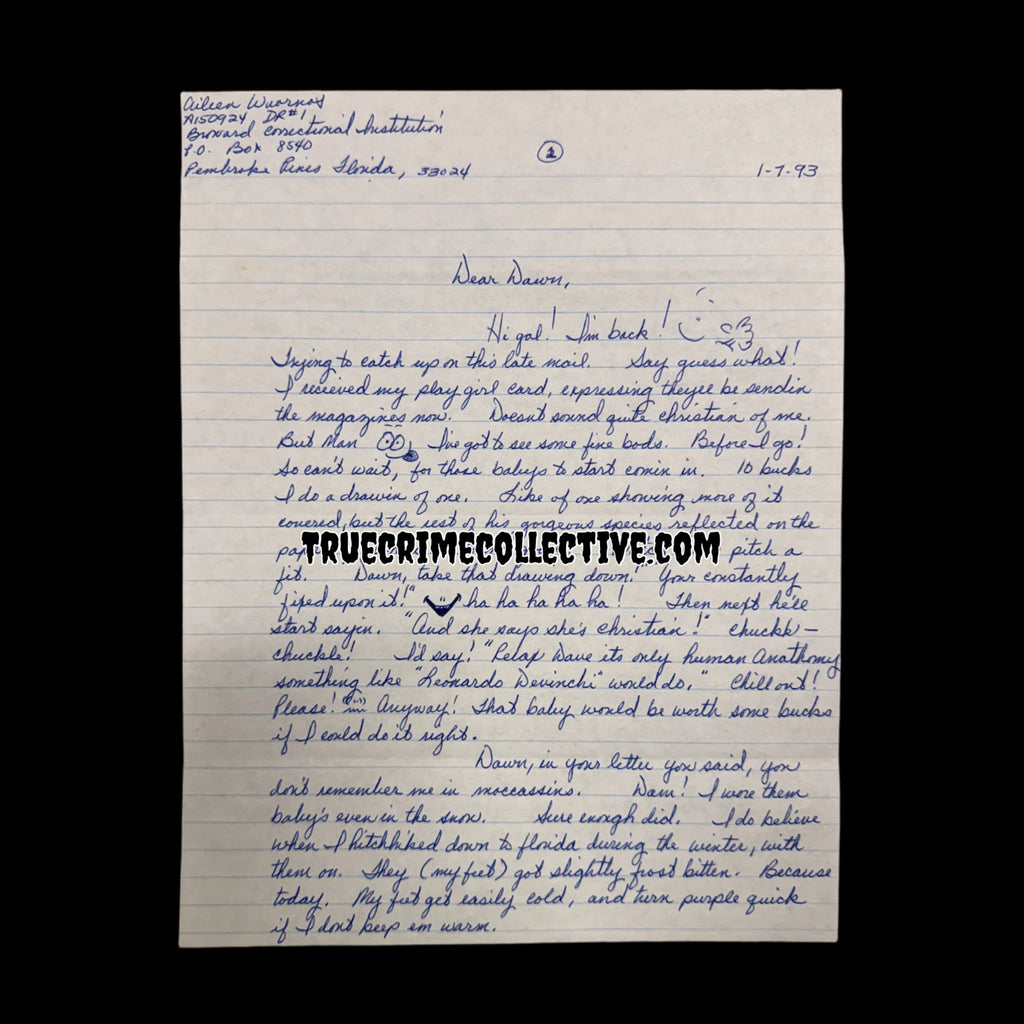 Aileen Wuornos
A150924 DR#1
Broward Correctional Institution
P.O. Box 8540
Pembroke Pines Florida, 33024
2
1-7-93
Dear Dawn,
Hi gal! I'm back!
Trying to catch up on this late mail. Say guess what!
I received my play girl card, expressing theyee be sendin
the magazines now. Doesn't sound quite christian of me.
But Man I've got to see some fine bods. Before I go!
So can't wait, for those babys to start comin in. 10 bucks
I do a drawin of one. Like of one showing more of it
covered, but the rest of his gorgeous species reflected on the
pitch a
TRUECRIMECOLLECTIVE.COM
fit. "Dawn, take that drawing down! Your constantly
fixed upon it!" ha ha ha ha ha! Then next he'll
start sayin. "And she says she's christian!" chuckk-
chuckle! I'd say! "Relax Dave its only human Anathomy
something like "Leonardo Devinchi" would do." Chill out!
Please! Anyway! That baby would be worth some bucks
if I could do it right.
Dawn, in your letter you said, you
don't remember me in moccassins. Dam! I wore them
baby's even in the snow. Sure enough did. I do believe
when I hitchhiked down to florida during the winter, with
them on. They (my feet) got slightly frost bitten. Because
today. My feet get easily cold, and turn purple quick
if I don't keep em warm.